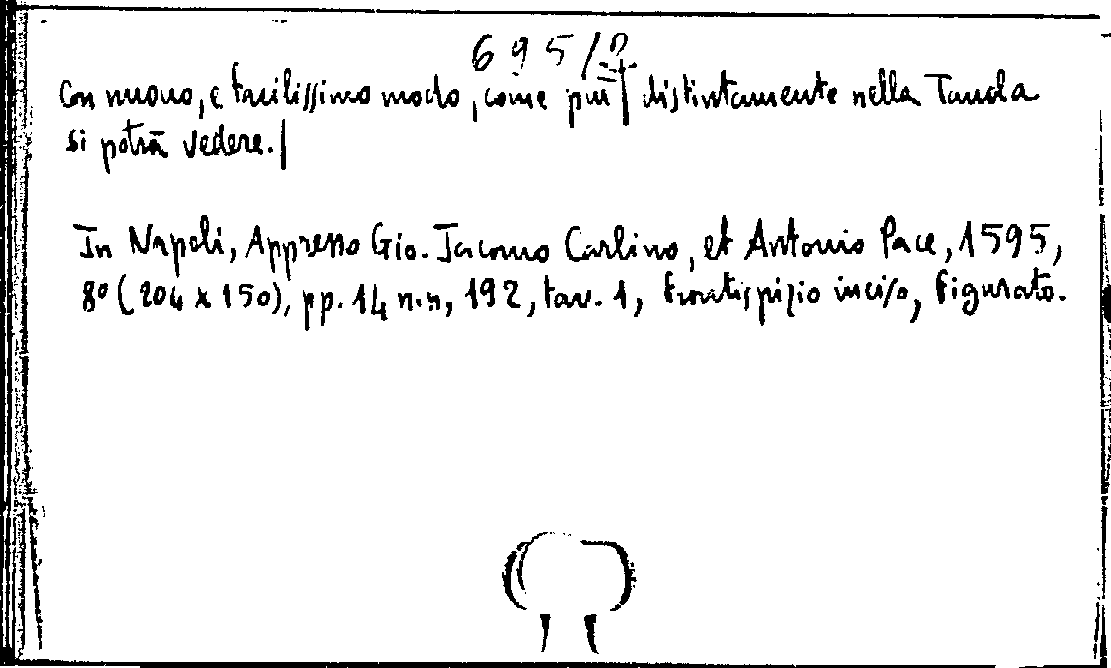 695/2
Con nuouo, e facilissimo modo, come più distintamente nella Tauola
si potrà vedere.|
In Napoli, Appresso Gio. Jacomo Carlino, et Antonio Pace, 1595,
8º (204 x 150), pp. 14 n.n, 192, tav. 1, frontispizio inciso, figurato.